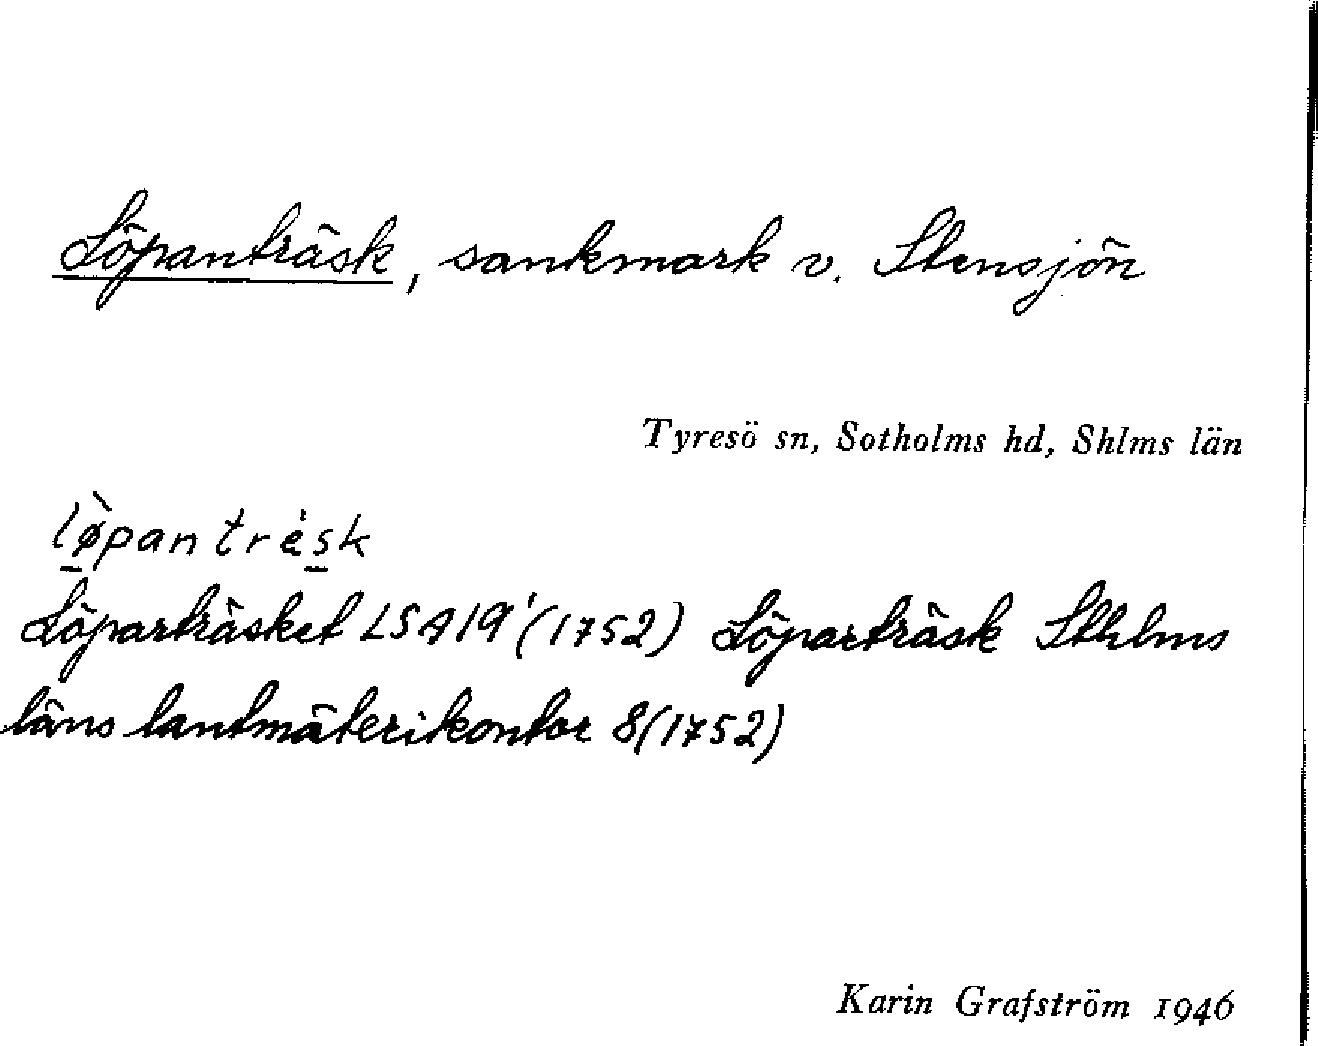 Löpanträsk, sankmark v. Stensjön
Tyresö sn, Sotholms hd, Shlms län
lø̀pantrésk
Löparträsket LSA 19¹ (1752) Löparträsk Sthlms
läns lantmäterikontor 8(1752)
Karin Grafström 1946